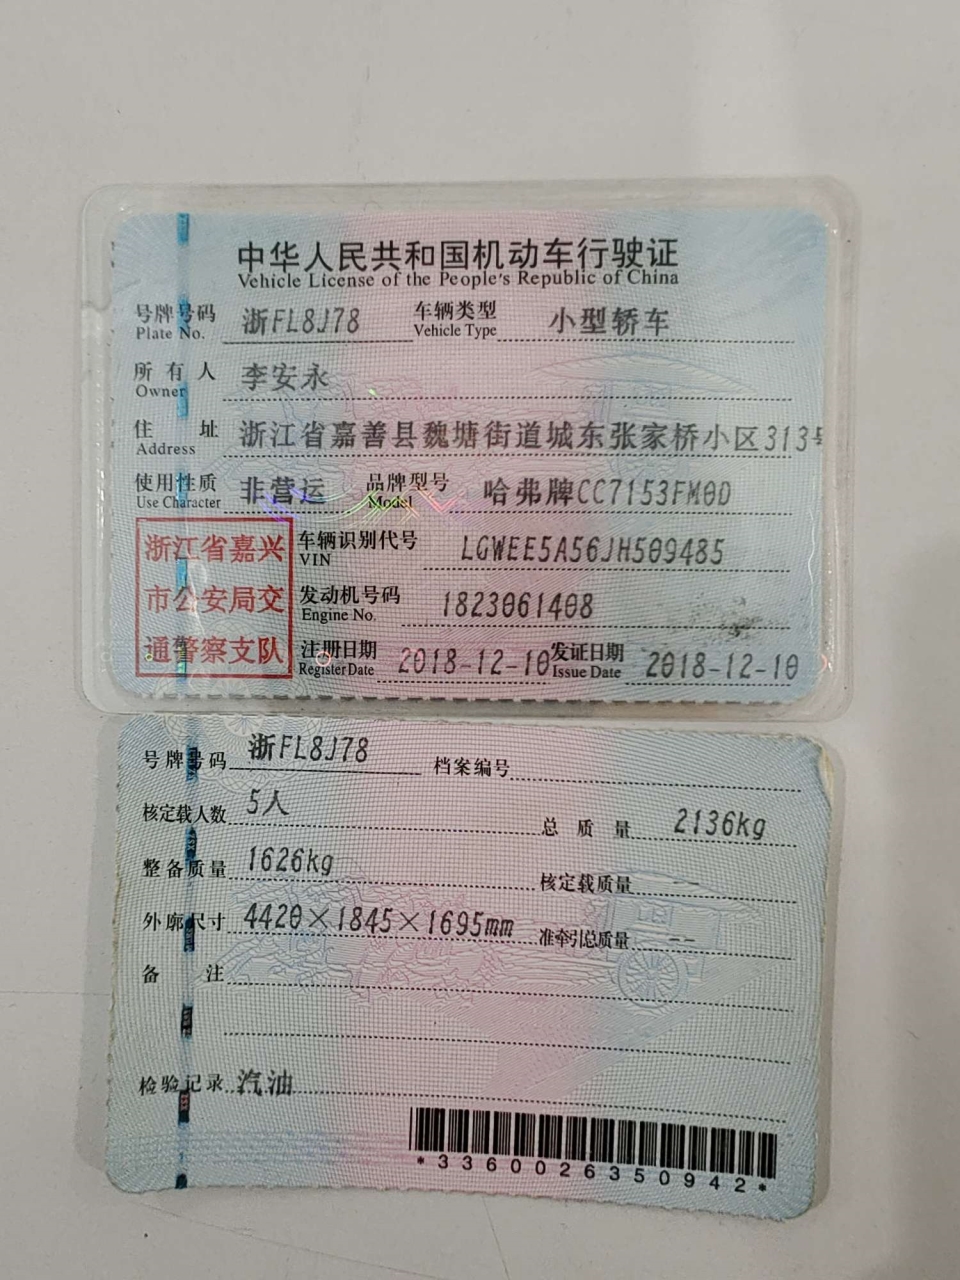 中华人民共和国机动车行驶证
Vehicle License of the People's Republic of China
号牌号码 浙FL8J78 车辆类型 小型轿车
Plate No. Vehicle Type
所有人 李安永
Owner
住址 浙江省嘉善县魏塘街道城东张家桥小区313号
Address
使用性质 非营运 品牌型号 哈弗牌CC7153FM0D
Use Character Model
浙江省嘉兴
市公安局交
通警察支队
车辆识别代号 LGWEE5A56JH509485
VIN
发动机号码 1823061408
Engine No.
注册日期 2018-12-10 发证日期 2018-12-10
Register Date Issue Date
号牌号码 浙FL8J78 档案编号
核定载人数 5人 总质量 2136kg
整备质量 1626kg 核定载质量 --
外廓尺寸 4420×1845×1695mm 准牵引总质量 --
备注
检验记录 汽油
*3360026350942*